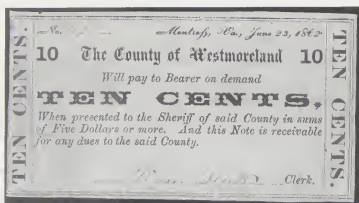 No.
Montross, Va., June 23, 1862
10 The County of Westmoreland 10
Will pay to Bearer on demand
TEN CENTS,
When presented to the Sheriff of said County in sums
of Five Dollars or more. And this Note is receivable
for any dues to the said County.
Clerk.
TEN CENTS.
TEN CENTS.